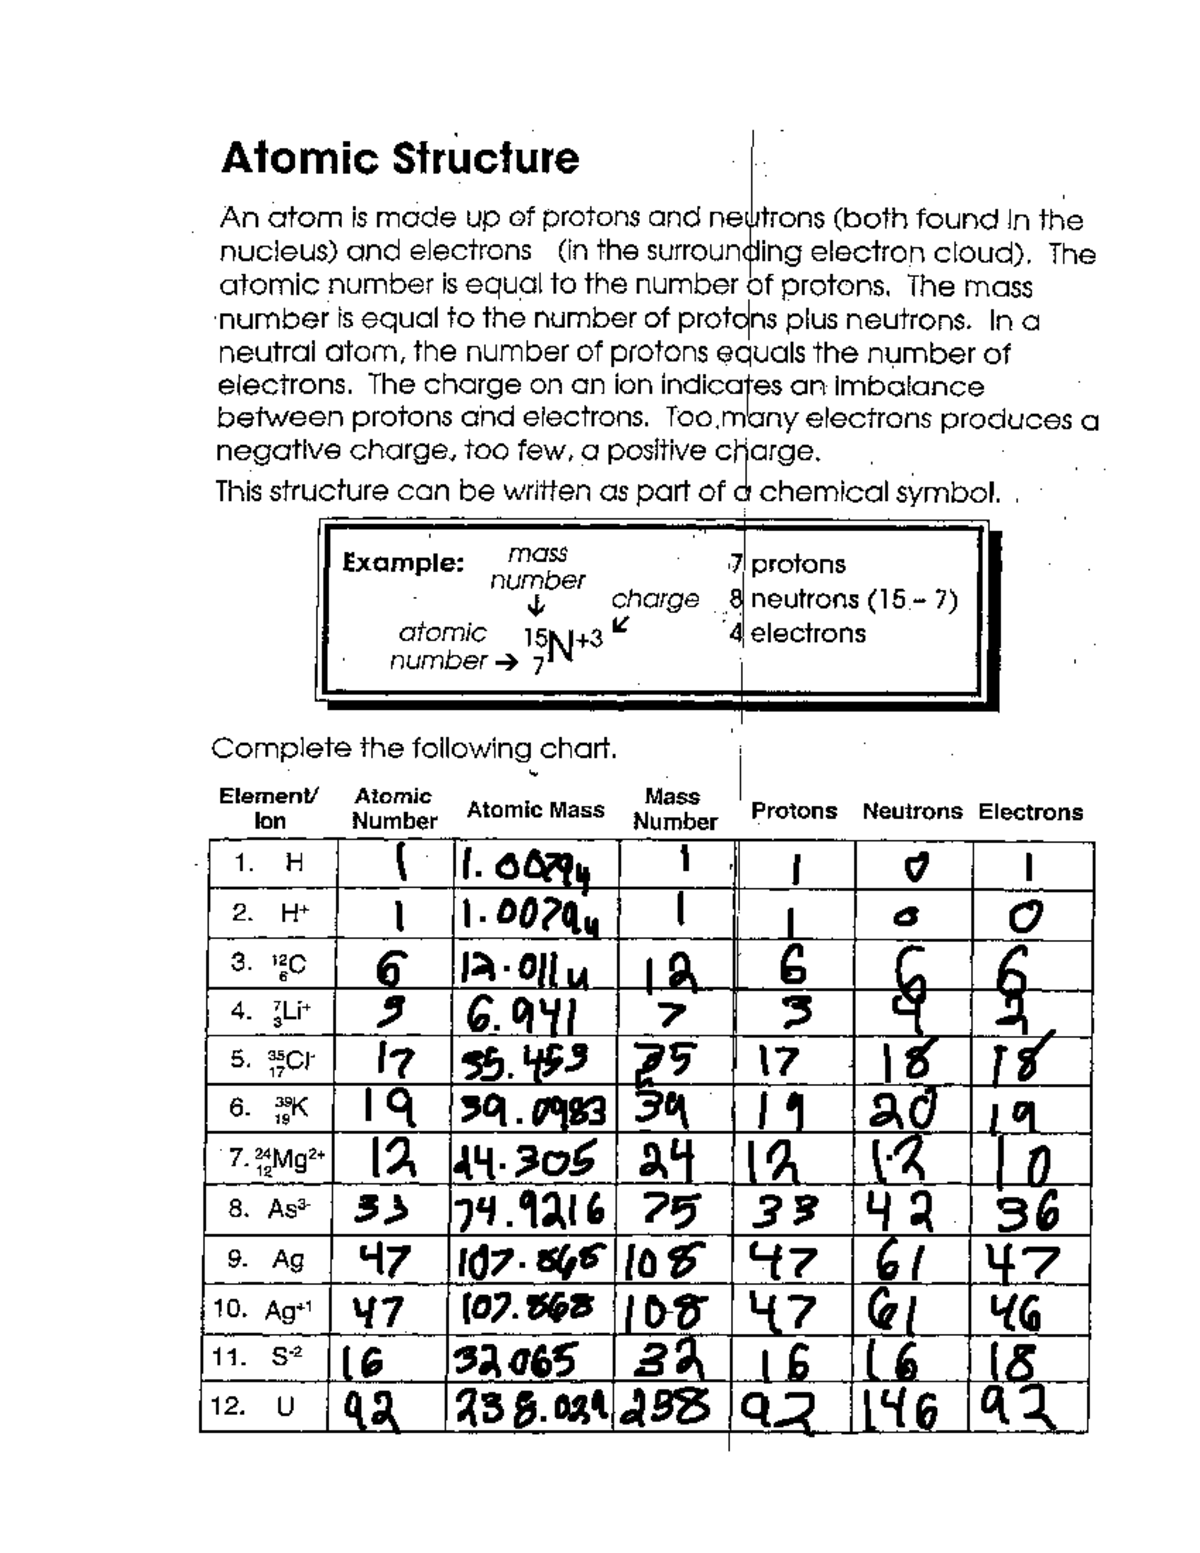 Atomic Structure
An atom is made up of protons and neutrons (both found in the
nucleus) and electrons (in the surrounding electron cloud). The
atomic number is equal to the number of protons. The mass
number is equal to the number of protons plus neutrons. In a
neutral atom, the number of protons equals the number of
electrons. The charge on an ion indicates an imbalance
between protons and electrons. Too many electrons produces a
negative charge, too few, a positive charge.
This structure can be written as part of a chemical symbol.
Example: mass number ↓ charge ↙ atomic number → 15 7 N+3
7 protons
8 neutrons (15 – 7)
4 electrons
Complete the following chart.
Element/ Ion Atomic Number Atomic Mass Mass Number Protons Neutrons Electrons
1. H 1 1.00794 1 1 0 1
2. H+ 1 1.0079u 1 1 0 0
3. 12 6 C 6 12.011u 12 6 6 6
4. 7 3 Li+ 3 6.941 7 3 4 2
5. 35 17 Cl- 17 35.453 35 17 18 18
6. 39 19 K 19 39.0983 39 19 20 19
7. 24 12 Mg2+ 12 24.305 24 12 12 10
8. As3- 33 74.9216 75 33 42 36
9. Ag 47 107.868 108 47 61 47
10. Ag+1 47 107.868 108 47 61 46
11. S-2 16 32065 32 16 16 18
12. U 92 238.029 238 92 146 92